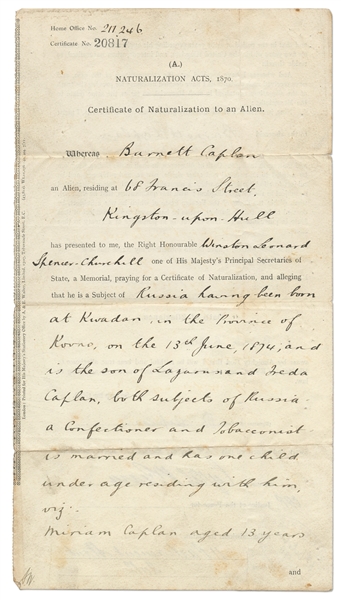 Home Office No. 211246
Certificate No. 20817
(A.)
NATURALIZATION ACTS, 1870.
Certificate of Naturalization to an Alien.
Whereas Burnett Caplan
an Alien, residing at 68 Francis Street,
Kingston-upon-Hull
has presented to me, the Right Honourable Winston Leonard
Spencer-Churchill one of His Majesty's Principal Secretaries
of State, a Memorial, praying for a Certificate of Naturalization, and alleging
that he is a Subject of Russia having been born
at Kwadan, in the Province of
Kovno, on the 13th June, 1874, and
is the son of Lazarus and Freda
Caplan, both subjects of Russia
a Confectioner and Tobacconist
is married and has one child
under age residing with him,
viz:-
Miriam Caplan aged 13 years
and